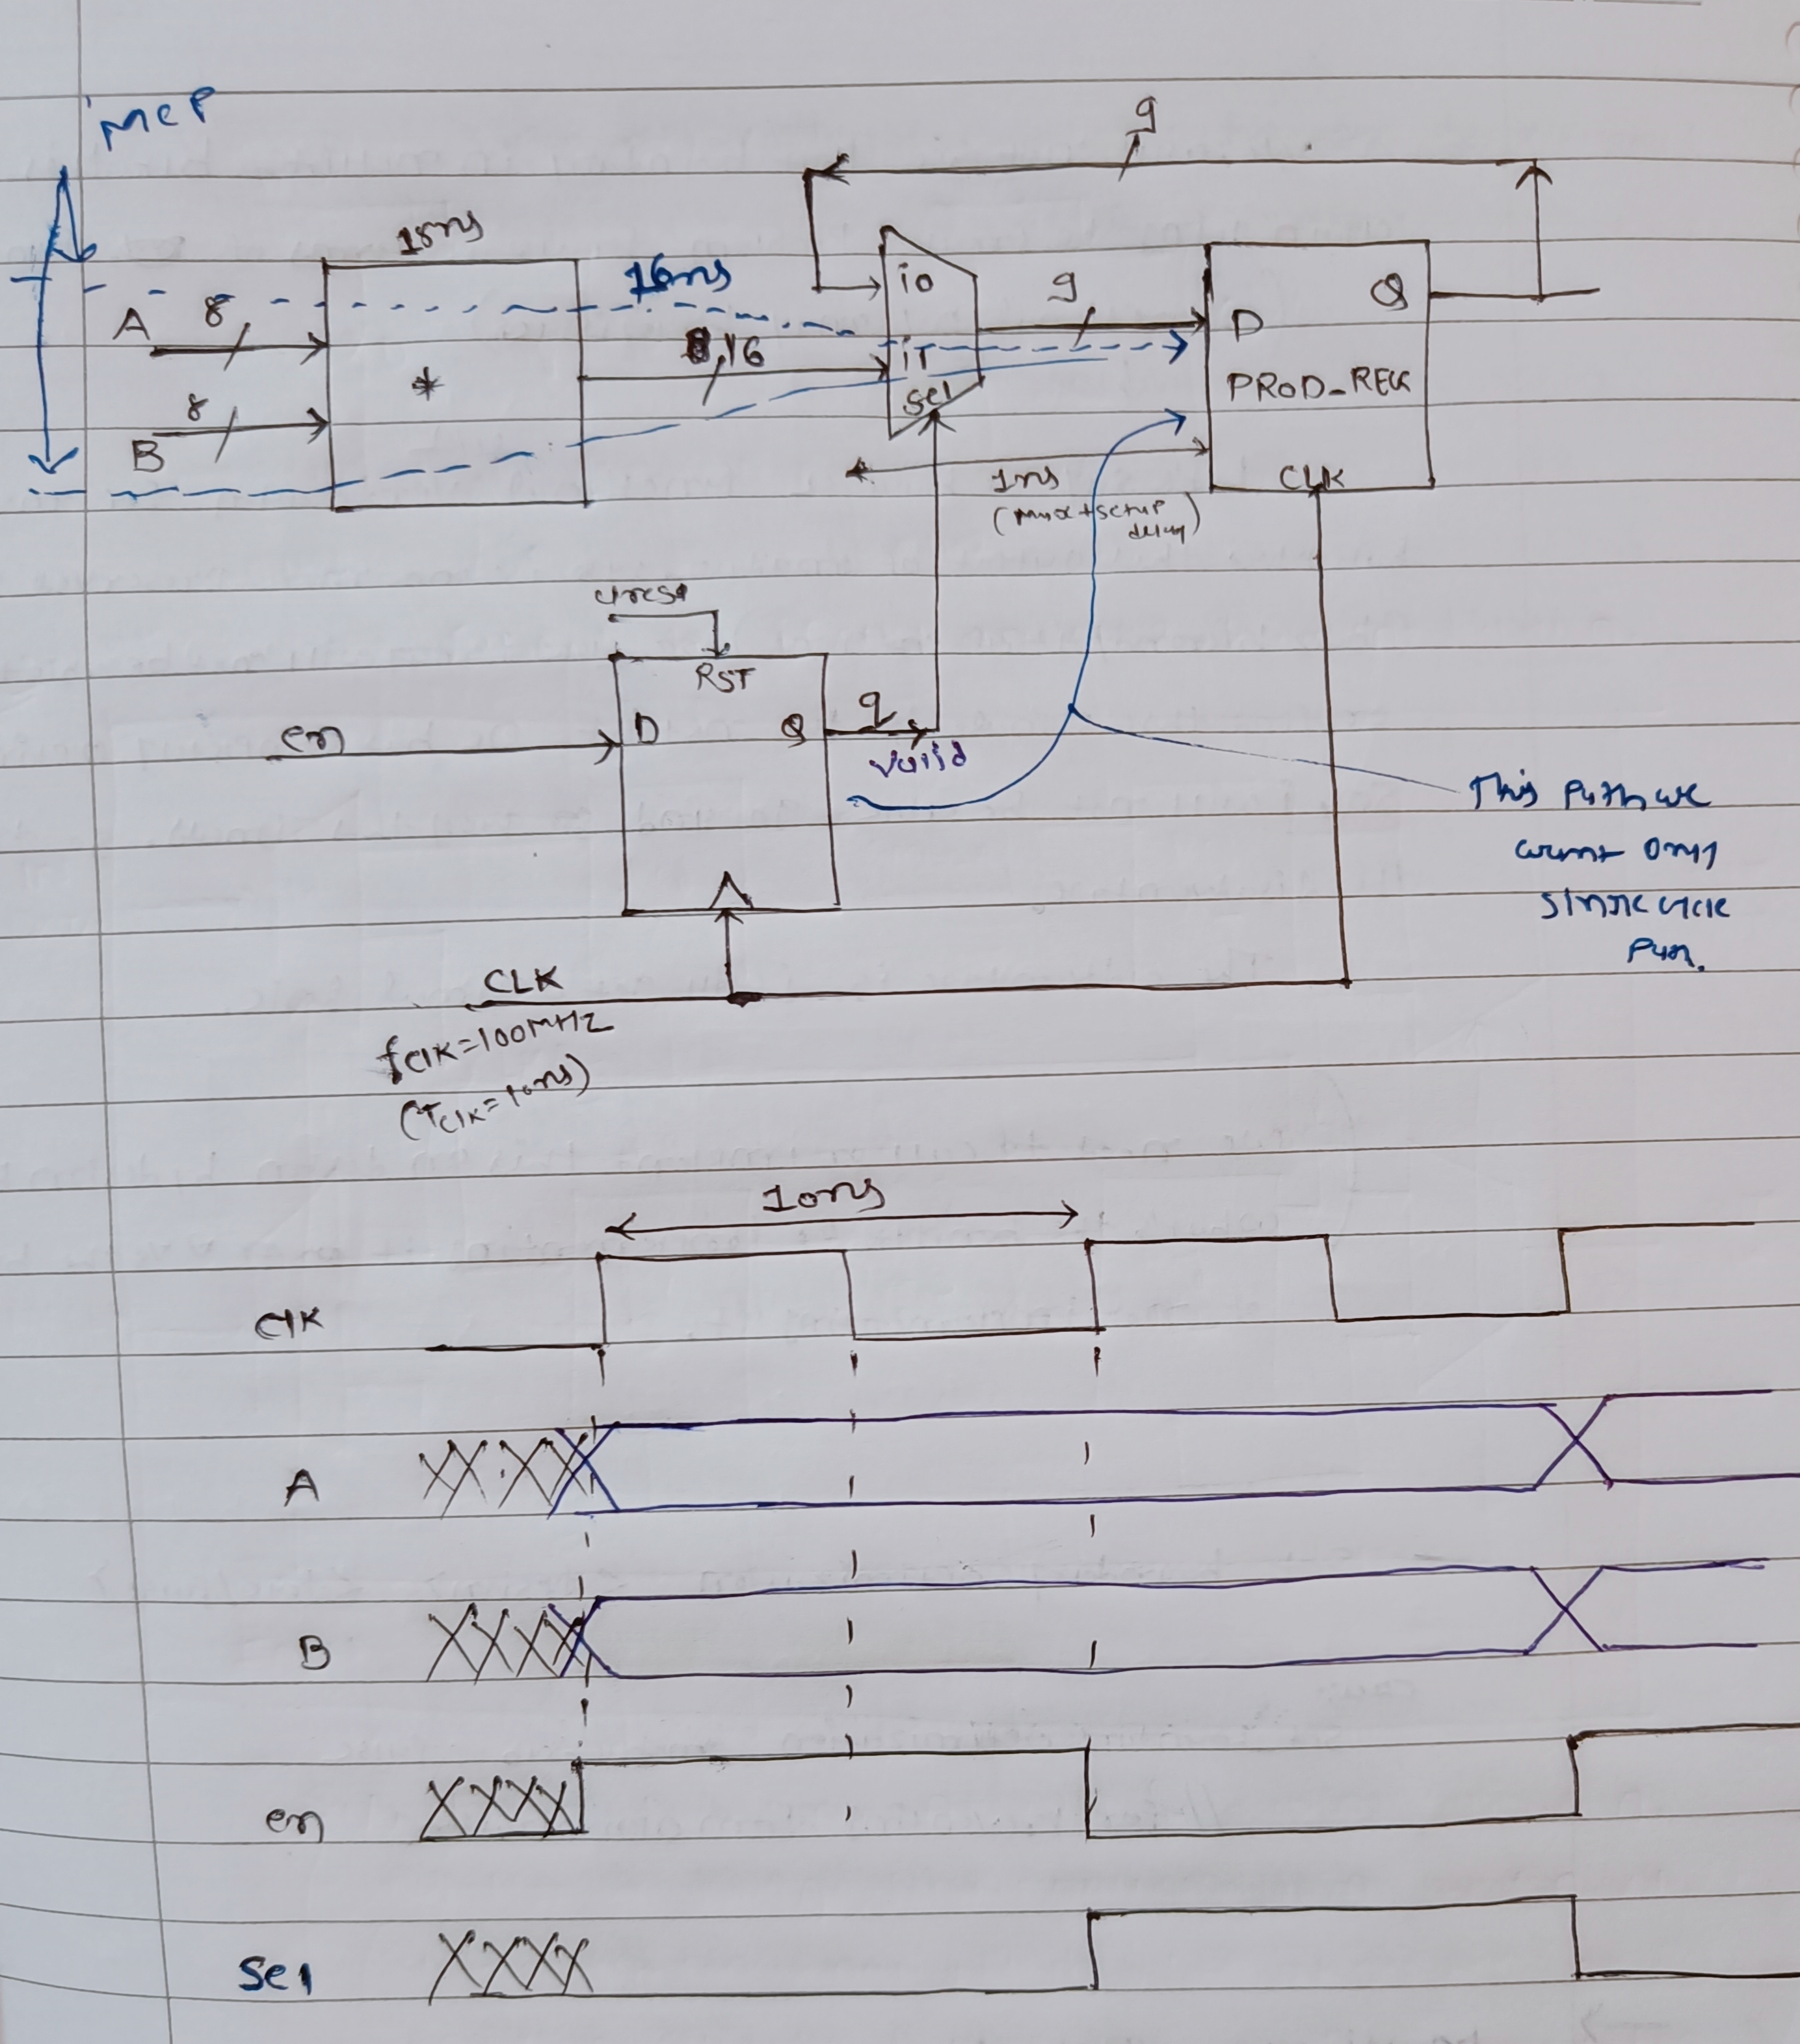 MCP
9
15ns
16ns
A 8
i0
9
Q
D
*
16
i1
8
sel
PROD_REG
B
1ns
CLK
(mux + setup
delay)
RST
en
D
Q
q
valid
This Path we
want only
single cycle
Path.
CLK
fclk=100MHz
(Tclk=10ns)
10ns
clk
A
B
en
Sel